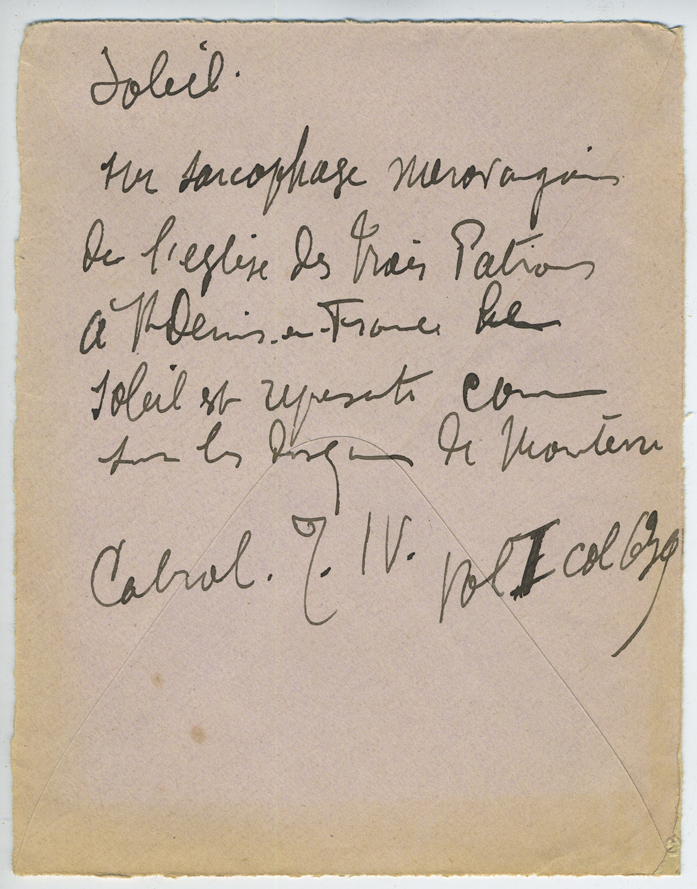 Soleil.
sur sarcophage merovingien
de l'eglise des Trois Patrons
à St Denis-en-France le
soleil est represente comme
sur les disques de
Cabrol. T. IV. vol I col 639